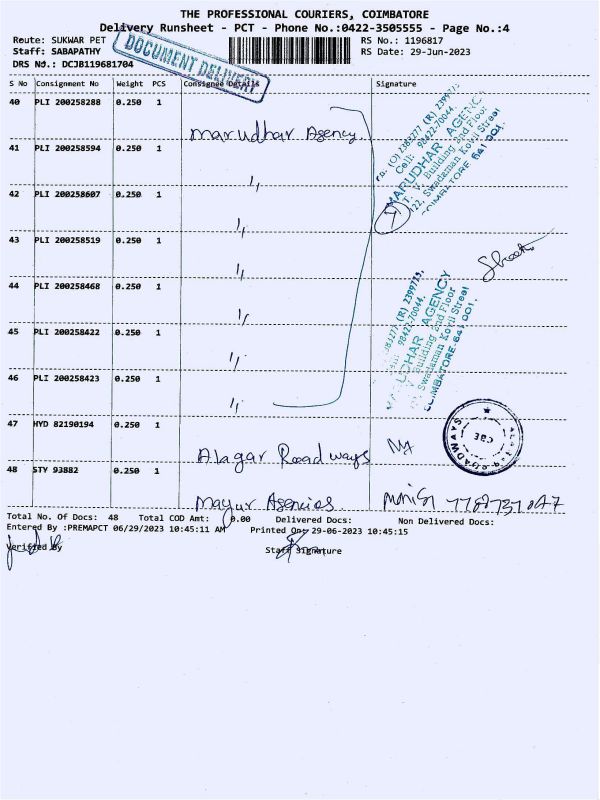 THE PROFESSIONAL COURIERS, COIMBATORE
Delivery Runsheet - PCT - Phone No.:0422-3505555 - Page No.:4
Route: SUKWAR PET RS No.: 1196817
Staff: SABAPATHY RS Date: 29-Jun-2023
DRS NO.: DCJB119681704
DOCUMENT DELIVERY
S No Consignment No Weight PCS Consignee Details Signature
40 PLI 200258288 0.250 1
Marudhar Agency.
41 PLI 200258594 0.250 1
42 PLI 200258607 0.250 1
43 PLI 200258519 0.250 1
44 PLI 200258468 0.250 1
45 PLI 200258422 0.250 1
46 PLI 200258423 0.250 1
(O) 2383277 (R) 2399715
Cell: 98422-70044.
MARUDHAR AGENCY
T. V. Building 2nd Floor
122, Swadaman Kovil Street
COIMBATORE 641 001.
7
383277 (R) 2399715,
98422-70044.
UDHAR AGENCY
Building 2nd Floor
Swadaman Kovil Street
COIMBATORE-641 001.
47 HYD 82190194 0.250 1
Alagar Roadways
CBE
48 STY 93882 0.250 1
Mayur Agencies
Total No. Of Docs: 48 Total COD Amt: 0.00 Delivered Docs: Non Delivered Docs:
Entered By :PREMAPCT 06/29/2023 10:45:11 AM Printed On: 29-06-2023 10:45:15
Verified By Staff Signature